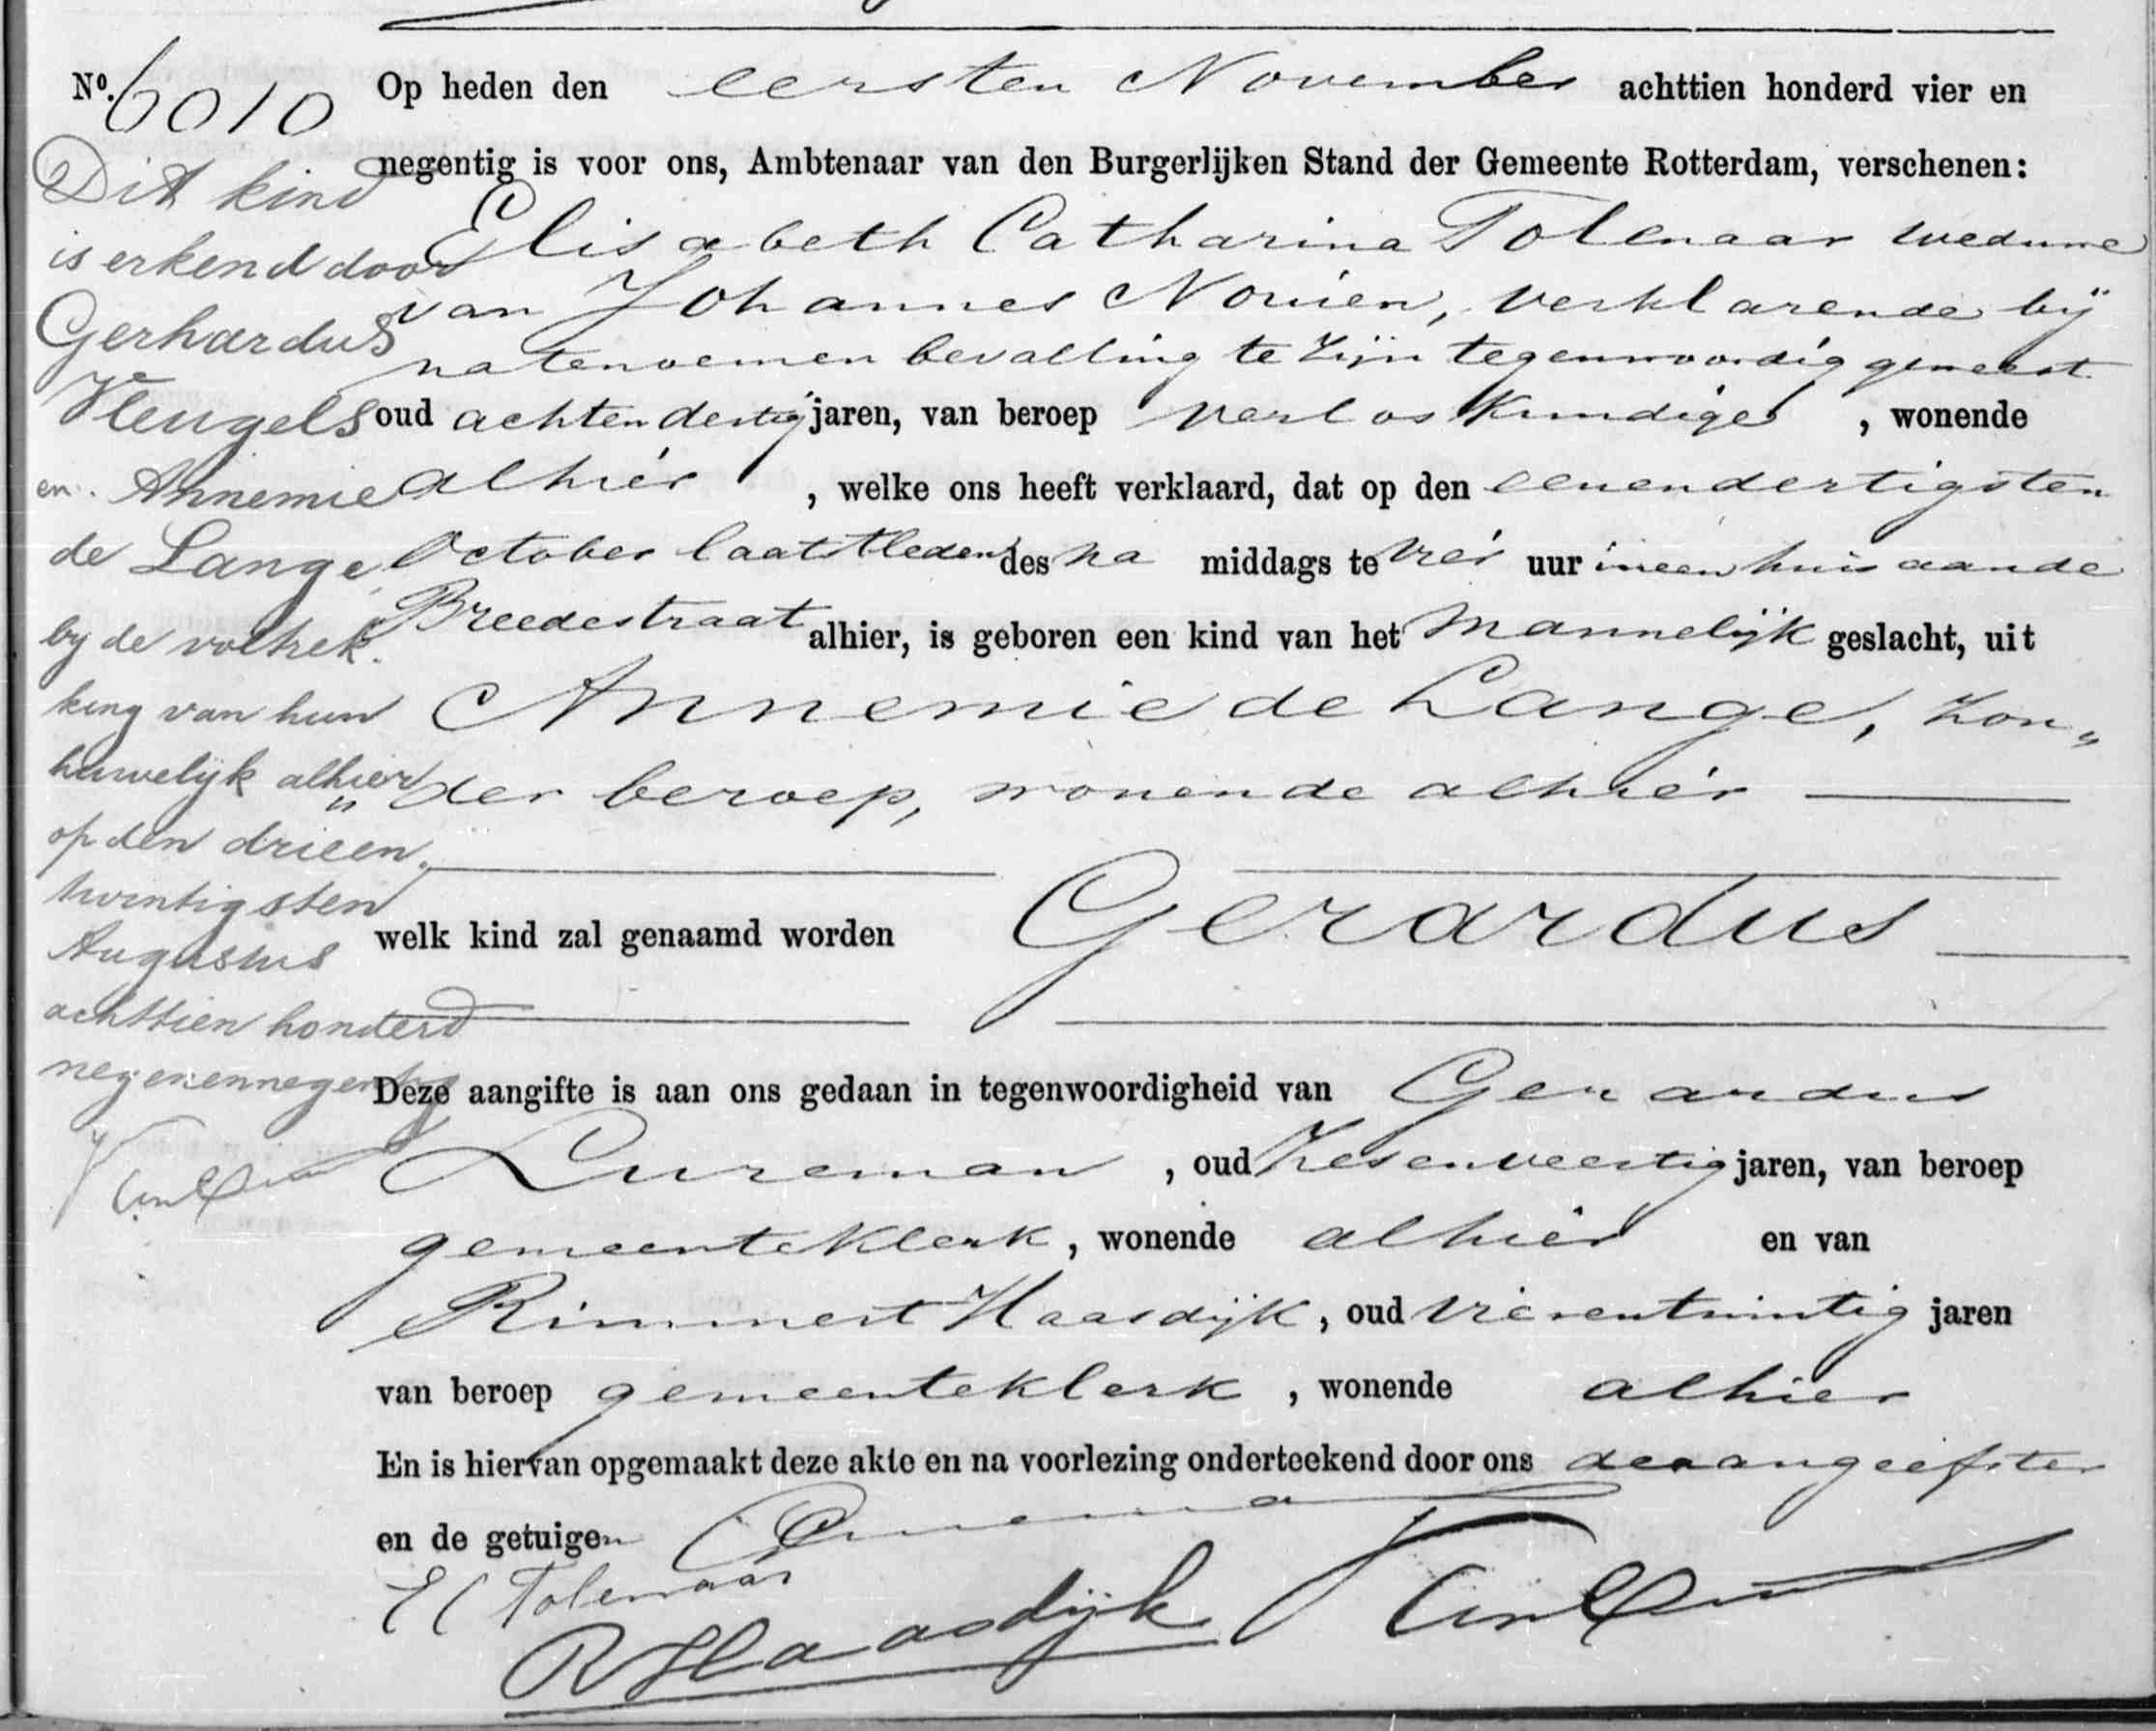 No. 6010
Op heden den eersten November achttien honderd vier en
negentig is voor ons, Ambtenaar van den Burgerlijken Stand der Gemeente Rotterdam, verschenen:
Elisabeth Catharina Tolenaar weduwe
van Johannes Nouien, verklarende bij
natenoemen bevalling te zijn tegenwoordig geweest
oud achtendertig jaren, van beroep verloskundige, wonende
alhier, welke ons heeft verklaard, dat op den eenendertigsten
October laatstleden des na middags te vier uur in een huis aan de
Breedestraat alhier, is geboren een kind van het mannelijk geslacht, uit
Annemie de Lange, zon„
„der beroep, wonende alhier
welk kind zal genaamd worden Gerardus
Deze aangifte is aan ons gedaan in tegenwoordigheid van Gerardus
Lureman, oud zesenveertig jaren, van beroep
gemeenteklerk, wonende alhier en van
Rimmert Haasdijk, oud vierentwintig jaren
van beroep gemeenteklerk, wonende alhier
En is hiervan opgemaakt deze akte en na voorlezing onderteekend door ons de aangeefster
en de getuigen
E C Tolenaar
R Haasdijk
Dit kind
is erkend door
Gerhardus
Heugels
en Annemie
de Lange
by de voltrek-
king van hun
huwelijk alhier
op den drieën-
twintigsten
Augustus
achttien honderd
negenennegentig